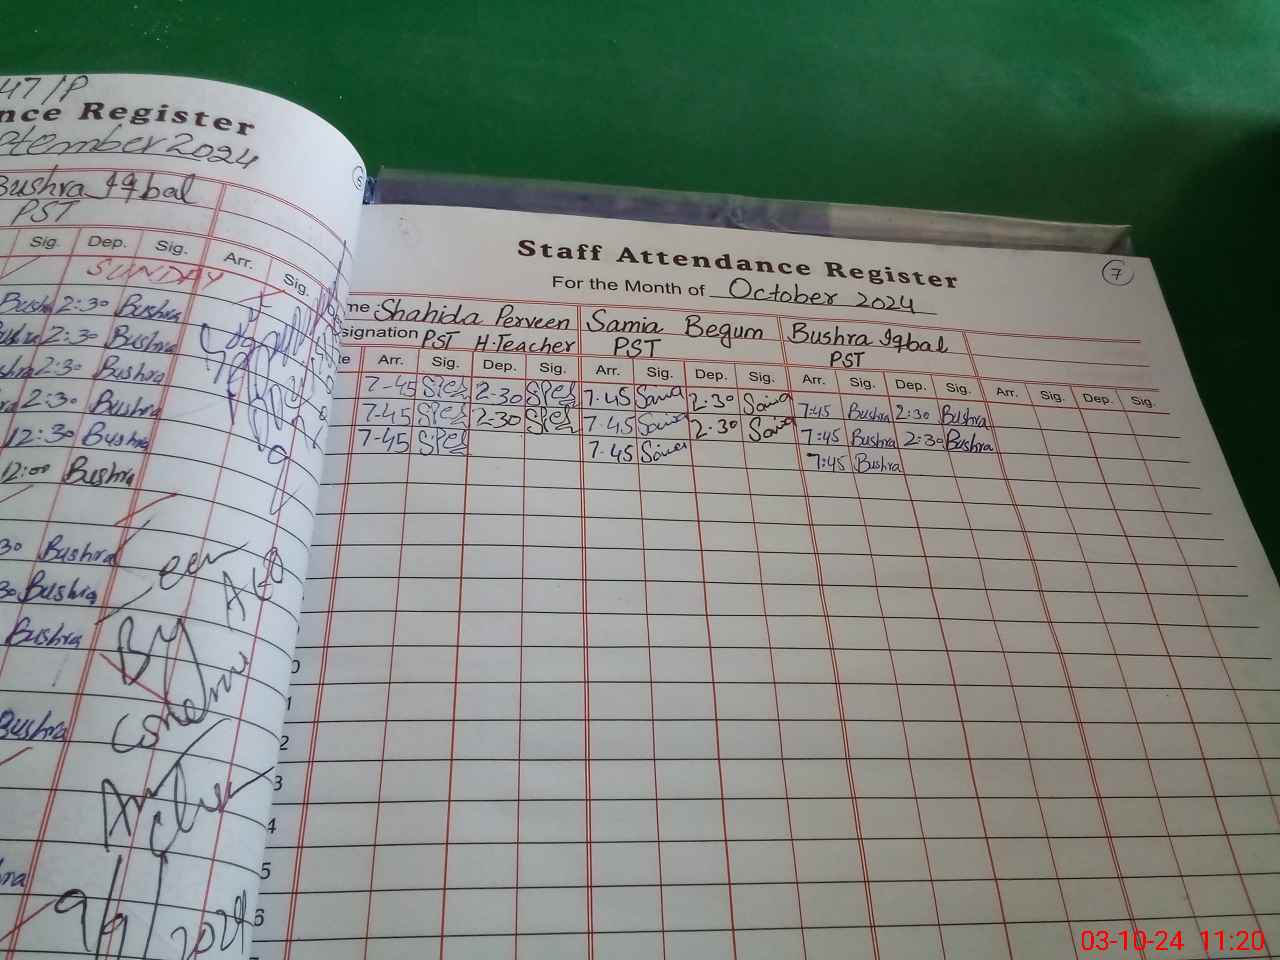 47/P
nce Register
ptember 2024
Bushra Iqbal
PST
Sig. Dep. Sig. Arr. Sig.
SUNDAY
Bush 2:30 Bushra
shra 2:30 Bushra
shra 2:30 Bushra
ra 2:30 Bushra
12:30 Bushra
12:00 Bushra
30 Bushra
30 Bushra
Bushra
Bushra
ra
een
By AEO
9/9/2024
5
7
Staff Attendance Register
For the Month of October 2024
me Shahida Perveen Samia Begum Bushra Iqbal
signation PST H.Teacher PST PST
te Arr. Sig. Dep. Sig. Arr. Sig. Dep. Sig. Arr. Sig. Dep. Sig. Arr. Sig. Dep. Sig.
7-45 2-30 7.45 Samia 2.30 Samia 7:45 Bushra 2:30 Bushra
7-45 2-30 7.45 Samia 2.30 Samia 7:45 Bushra 2:30 Bushra
7-45 7.45 Samia 7:45 Bushra
0
1
2
3
4
5
6
03-10-24 11:20